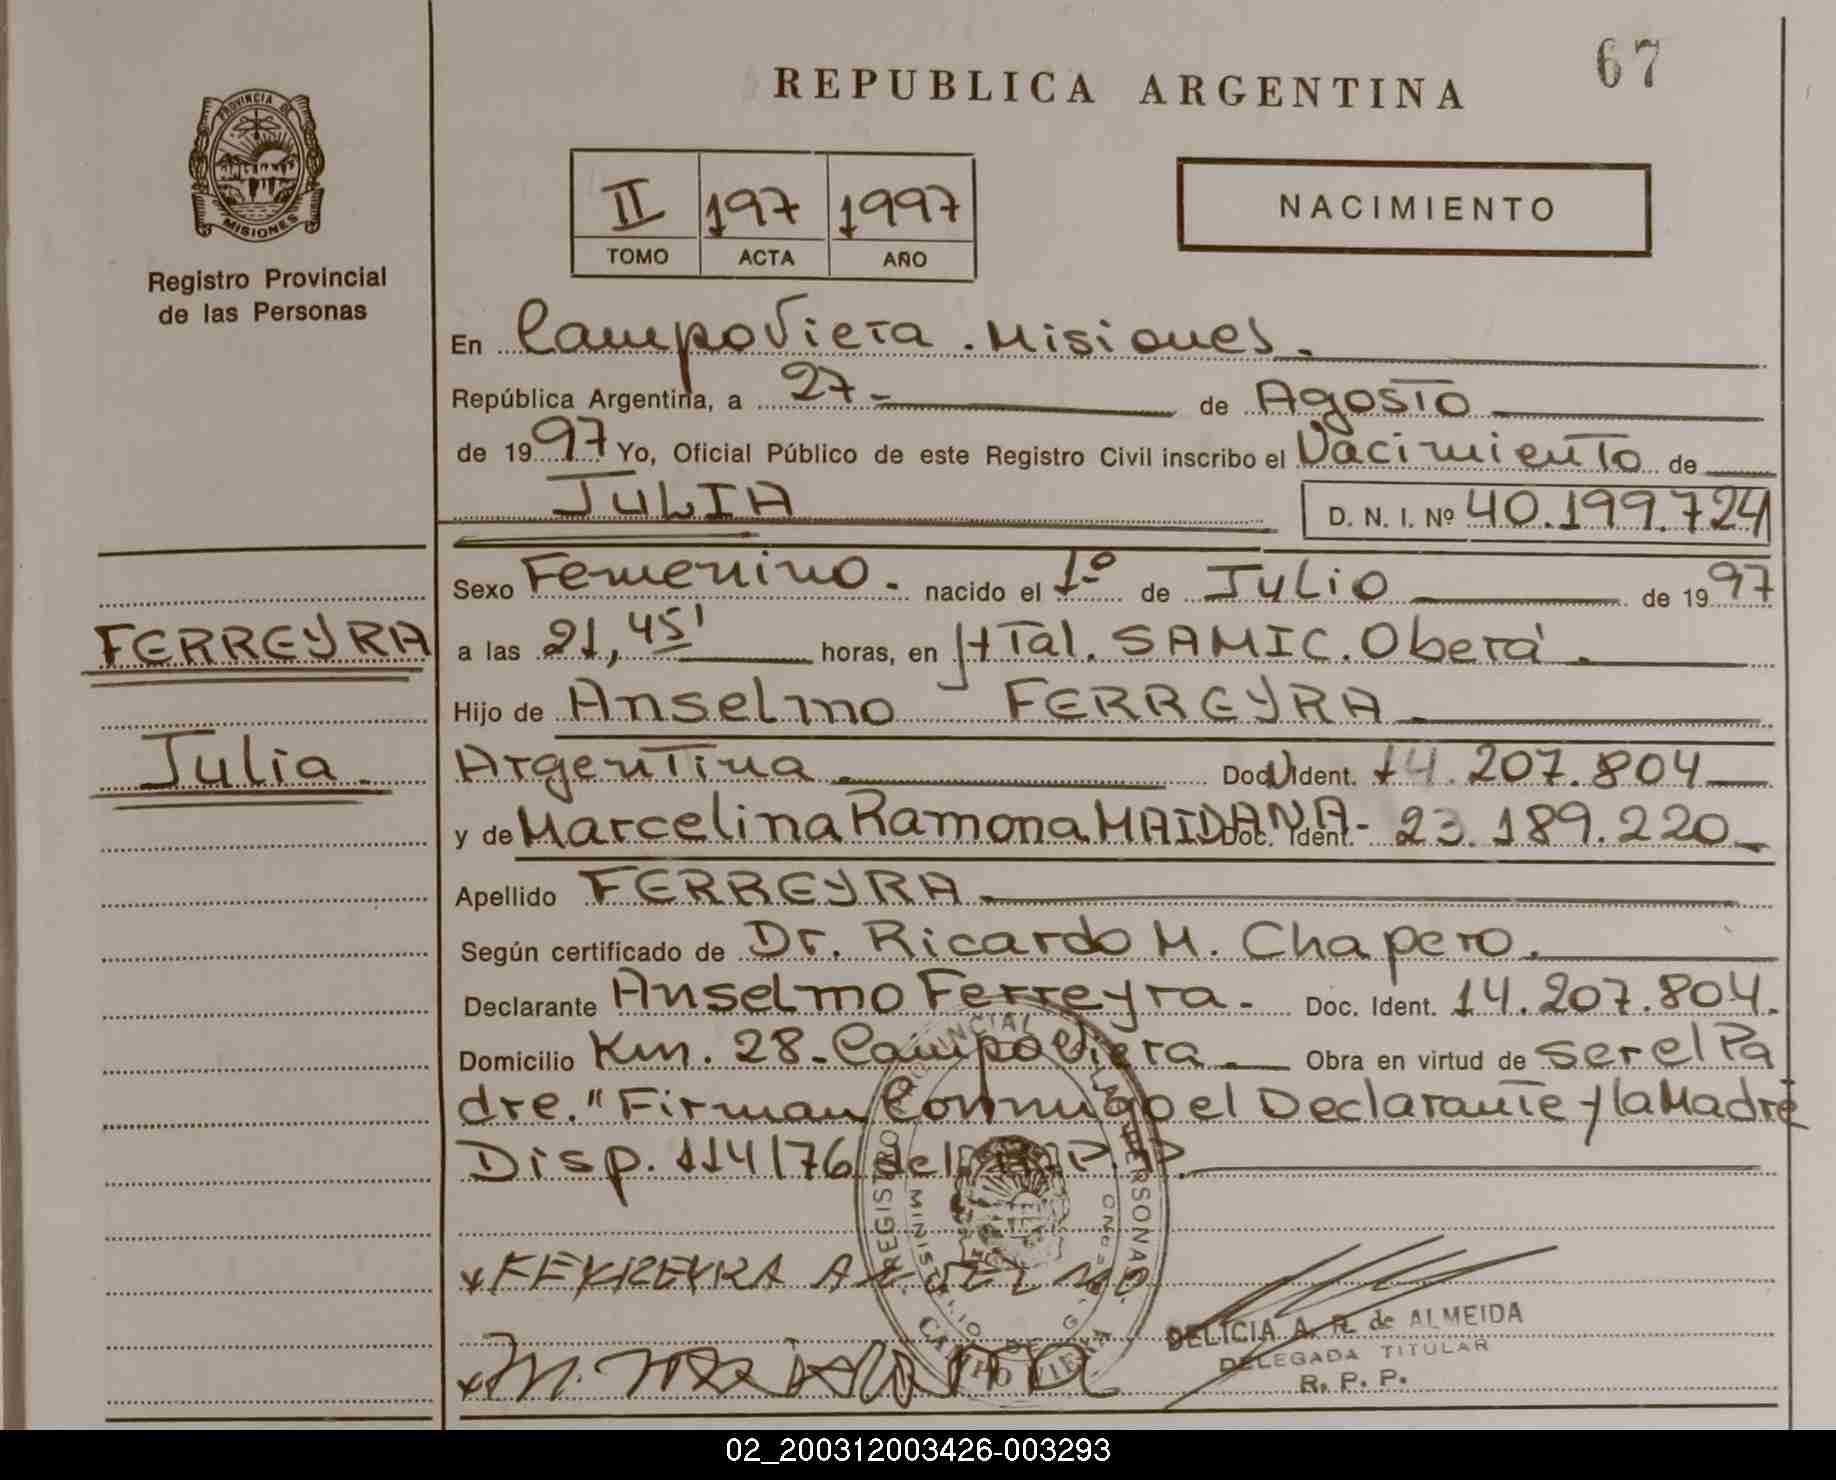 67
REPUBLICA ARGENTINA
PROVINCIA DE
MISIONES
Registro Provincial
de las Personas
II 197 1997
TOMO ACTA AÑO
NACIMIENTO
En Campo Viera. Misiones.
República Argentina, a 27 de Agosto
de 1997 Yo, Oficial Público de este Registro Civil inscribo el Nacimiento de
JULIA
D. N. I. Nº 40.199.724
Sexo Femenino. nacido el 1º de Julio de 1997
FERREYRA
a las 21,45' horas, en Htal. SAMIC. Oberá.
Hijo de Anselmo FERREYRA
Julia.
Argentina Doc. Ident. 14.207.804
y de Marcelina Ramona MAIDANA- Doc. Ident. 23.189.220
Apellido FERREYRA
Según certificado de Dr. Ricardo M. Chapero.
Declarante Anselmo Ferreyra. Doc. Ident. 14.207.804.
Domicilio Km. 28-Campo Viera Obra en virtud de ser el Pa
dre." Firman Conmigo el Declarante y la Madre
Disp. 114/76 del R.P.P.
FERREYRA ANSELMO
DELICIA A. R. de ALMEIDA
DELEGADA TITULAR
R. P. P.
02_200312003426-003293